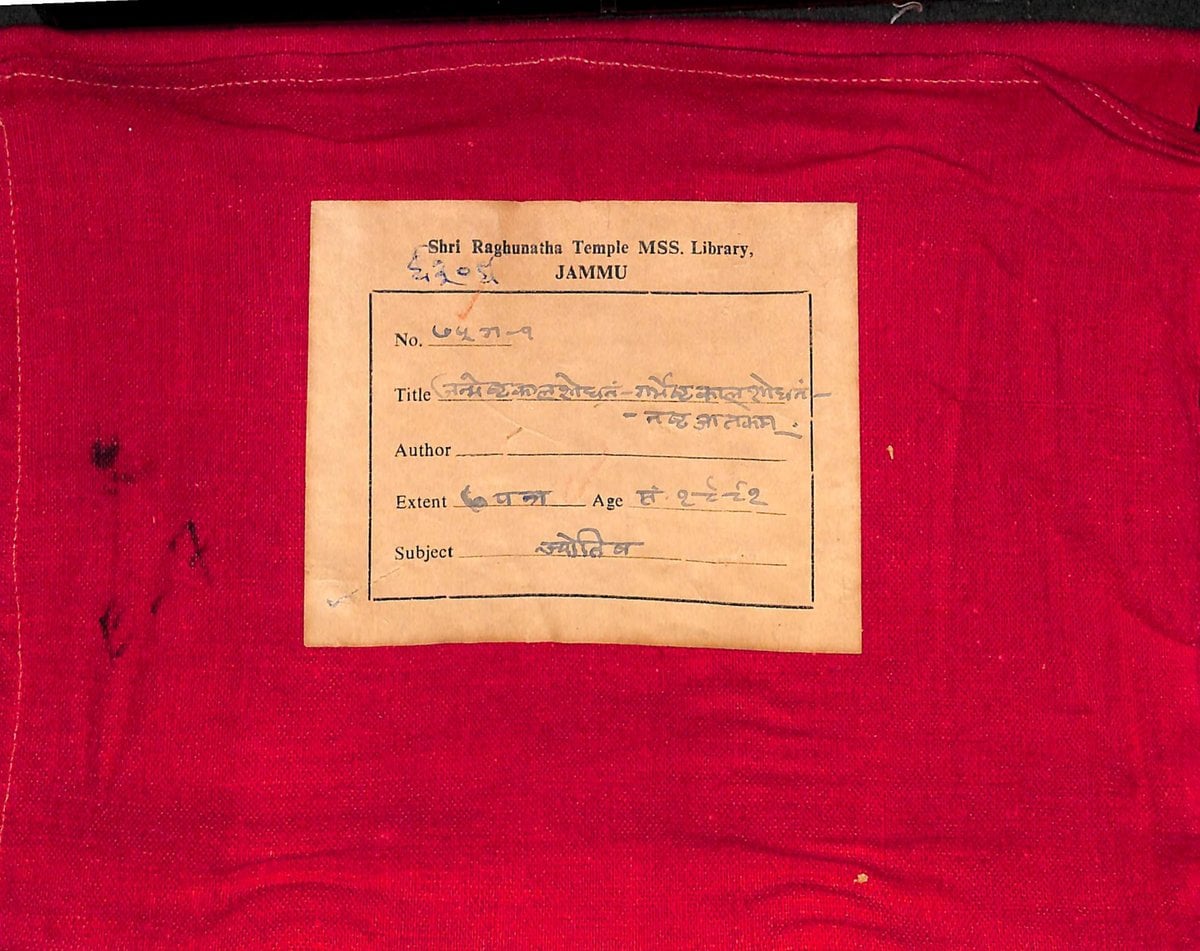 Shri Raghunatha Temple MSS. Library,
६२०६
JAMMU
No. ७५ ग-१
Title जन्मेष्टकालशोधनं-गर्भेष्टकालशोधनं-
-नष्टजातकम्.
Author
Extent ७ पत्र Age सं. १९९१
Subject ज्योतिष